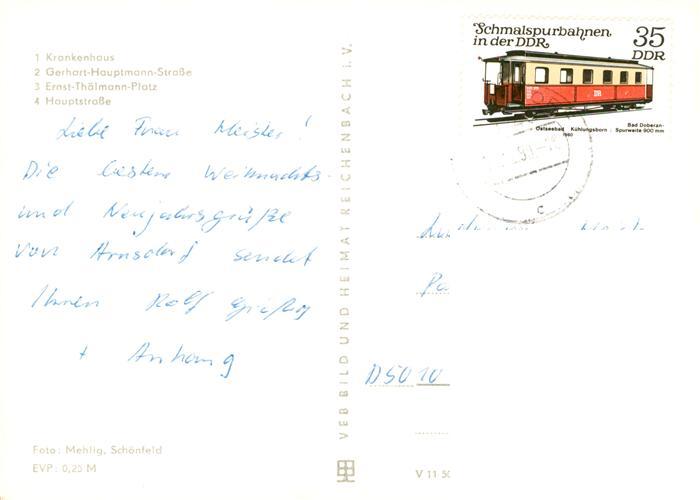 1 Krankenhaus
2 Gerhart-Hauptmann-Straße
3 Ernst-Thälmann-Platz
4 Hauptstraße
Liebe Frau Meister!
Die besten Weihnachts-
und Neujahrsgrüße
von Arnsdorf sendet
Ihnen Rolf
+ Anhang
Foto: Mehlig, Schönfeld
EVP: 0,20 M
VEB BILD UND HEIMAT REICHENBACH i. V.
Schmalspurbahnen
in der DDR
35
DDR
DR
Bad Doberan-
Ostseebad Kühlungsborn : Spurweite 900 mm
c
D 5010
V 11 50